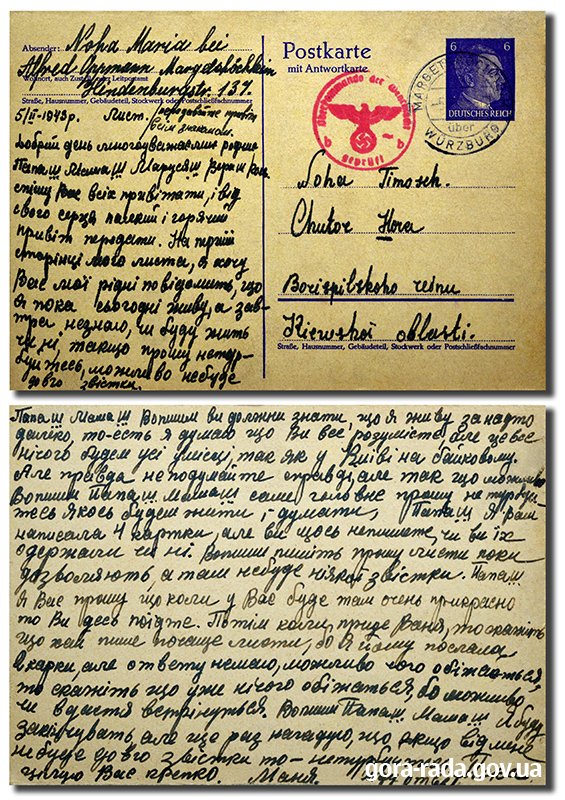 Absender: Noha Maria bei
Alfred Margetshöchheim
Wohnort, auch Zustell- oder Leitpostamt
Hindenburgstr. 131.
Straße, Hausnummer, Gebäudeteil, Stockwerk oder Postschließfachnummer
Postkarte
mit Antwortkarte
6 6
DEUTSCHES REICH
über
WÜRZBURG
Oberkommando der Wehrmacht
b b
geprüft
5/II-1943р. Лист.
Добрий день многоуважаемі родно
Папаш Мамаш Маруся Вера и
спішу Вас всіх привітати, і від
свого серця палкий і горячий
привіт передати. На
сторінці мого листа, я хочу
Вас мої рідні повідомить, що
я пока сьогодні живу, а зав-
тра незнаю, чи буду жить
чи ні, так що прошу нетур-
буйтесь, можливо небуде
довго звістки.
Noha Timoseh.
Chutor Hora
Borispilskoho
Kiewskoi oblasti.
Straße, Hausnummer, Gebäudeteil, Stockwerk oder Postschließfachnummer
Папаш Мамаш Вопшим ви должни знати, що я живу занадто
далеко, то-єсть я думаю що Ви все розумієте, але це все
нічого будем усі умісці, так як у
Але правда неподумайте справді, але так що можливо
Вопшим Папаш Мамаш саме головне прошу не турбуй-
тесь якось будем жити, і думати, Папаш я Вам
написала 4 картки, але ви щось непишете, чи ви їх
одержали чи ні. Вопшим пишіть прошу листи поки
дозволяють, а там небуде ніякої звістки. Папаш
я Вас прошу що коли у Вас буде там очень прикрасно
то Ви десь поїдте. Потім коли прийде Ваня, то скажіть
що хай пише почаще листи, бо я йому послала
карки, але ответу немаю, можливо чого обіжається,
то скажіть що уже нічого обіжаться, бо можливо
чи вдастся встрінуться. Вопшим Папаш Мамаш я буду
закінчувать, але ще раз нагадую, що якщо від мене
небуде довго звістки то-нетурбуйтесь.
цілую Вас крепко. Маня.
gora-rada.gov.ua